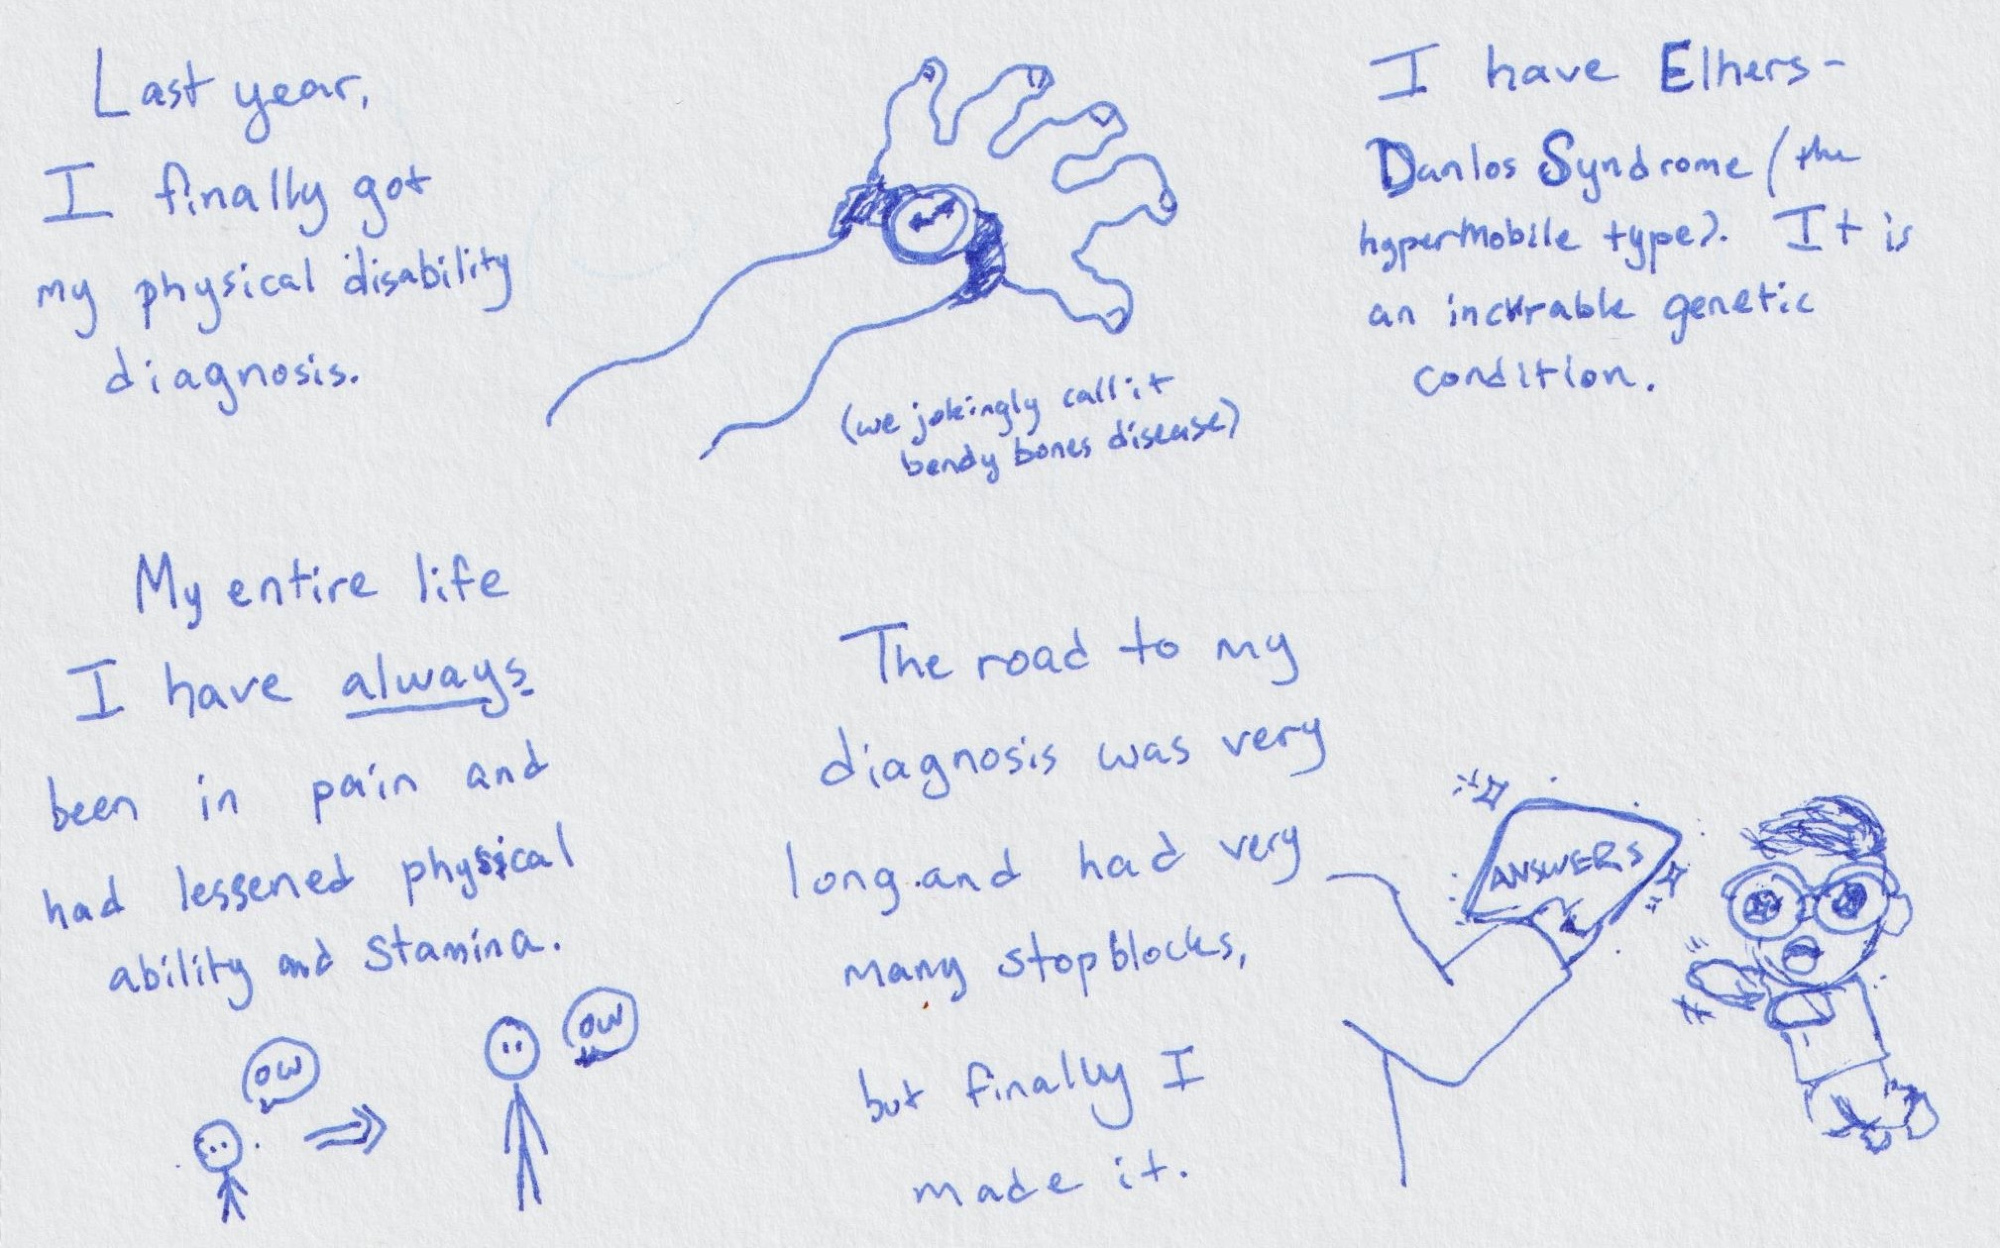 Last year,
I finally got
my physical disability
diagnosis.
(we jokingly call it
bendy bones disease)
I have Elhers-
Danlos Syndrome (the
hypermobile type). It is
an incurable genetic
condition.
My entire life
I have always
been in pain and
had lessened physical
ability and stamina.
OW
OW
The road to my
diagnosis was very
long and had very
many stopblocks,
but finally I
made it.
ANSWERS